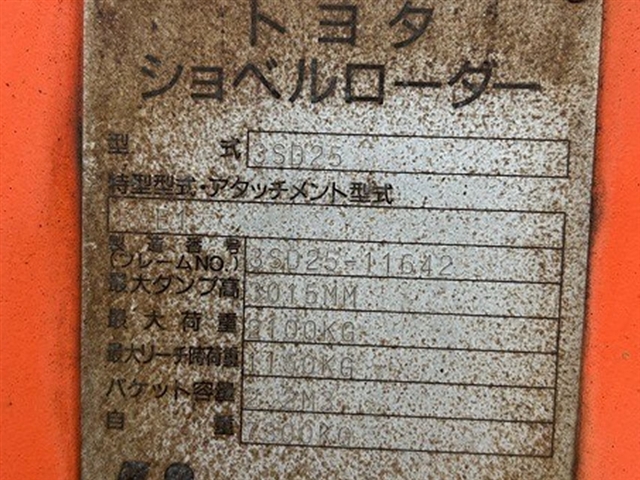 トヨタ
ショベルローダー
型式 3SD25
特型型式・アタッチメント型式
製造番号
(フレームNO.) 3SD25-11642
最大ダンプ高 3015MM
最大荷重 2100KG
最大リーチ時荷重 1150KG
バケット容量 M3
自重